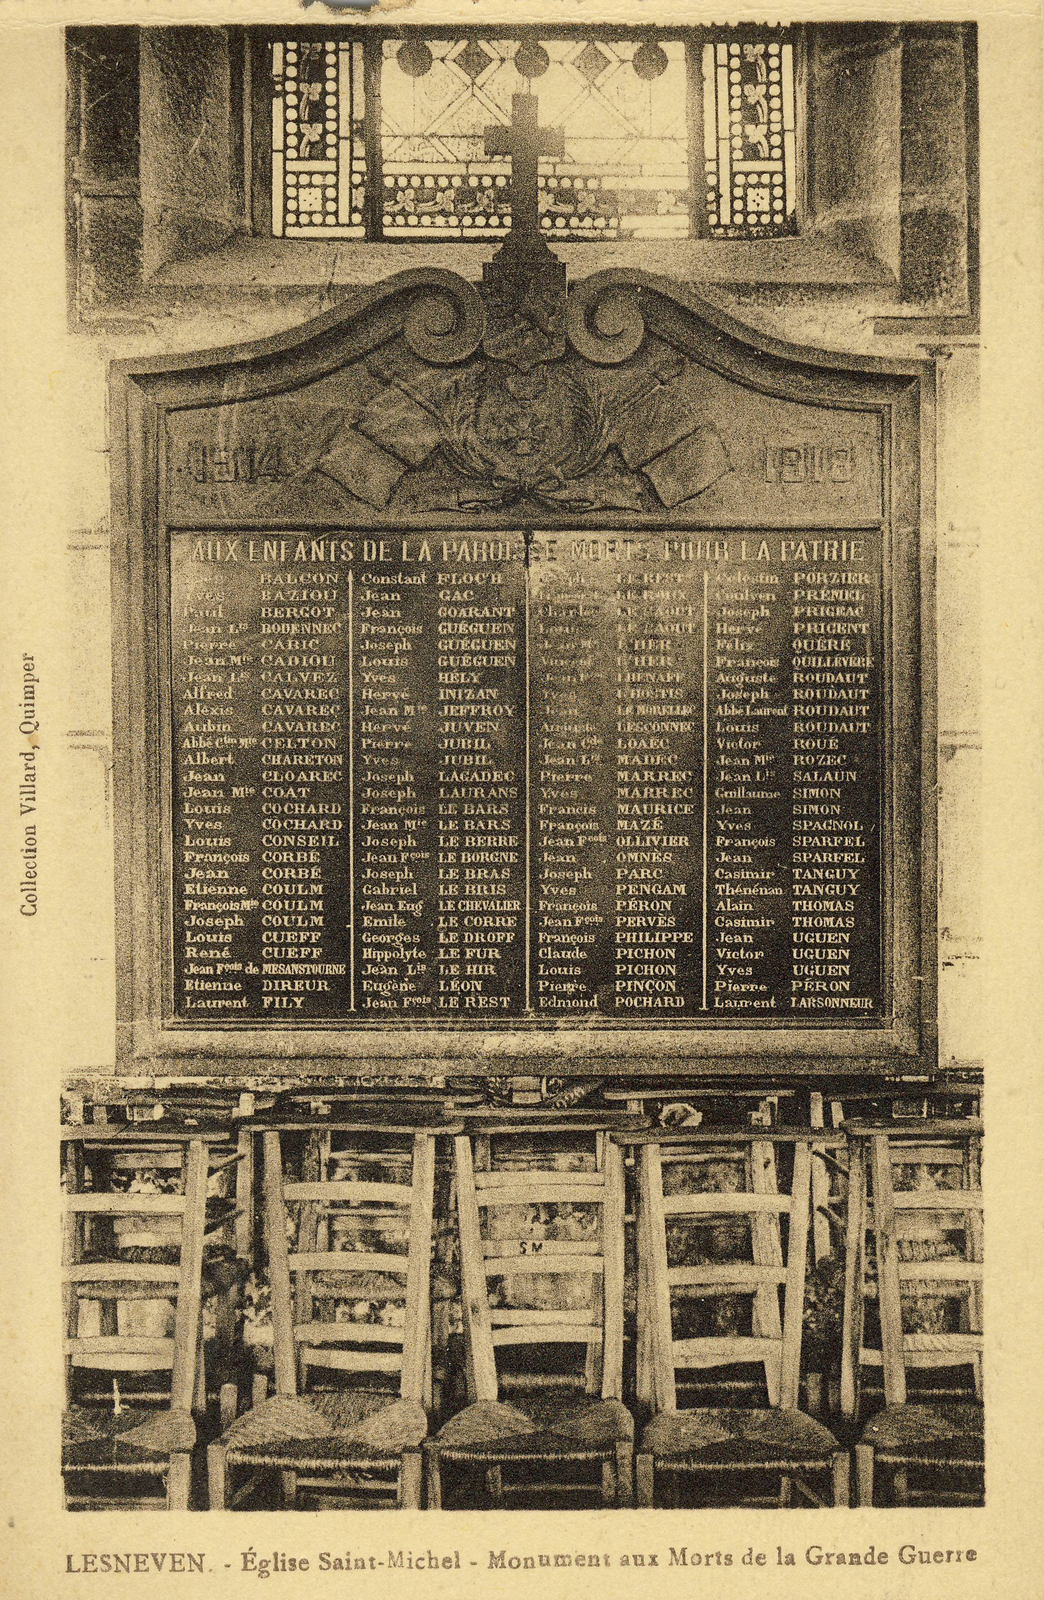 1914 1918
AUX ENFANTS DE LA PAROISSE MORTS POUR LA PATRIE
BALCON
Yves BAZIOU
Paul BERGOT
Jean Lis BODENNEC
Pierre CARIC
Jean Mie CADIOU
Jean Lis CALVEZ
Alfred CAVAREC
Alexis CAVAREC
Aubin CAVAREC
Abbé Ctin Mie CELTON
Albert CHARETON
Jean CLOAREC
Jean Mie COAT
Louis COCHARD
Yves COCHARD
Louis CONSEIL
François CORBÉ
Jean CORBÉ
Etienne COULM
François Mie COULM
Joseph COULM
Louis CUEFF
René CUEFF
Jean Fçois de MESANSTOURNE
Etienne DIREUR
Laurent FILY
Constant FLOC'H
Jean GAC
Jean GOARANT
François GUÉGUEN
Joseph GUÉGUEN
Louis GUÉGUEN
Yves HÉLY
Hervé INIZAN
Jean Mie JEFFROY
Hervé JUVEN
Pierre JUBIL
Yves JUBIL
Joseph LAGADEC
Joseph LAURANS
François LE BARS
Jean Mie LE BARS
Joseph LE BERRE
Jean Fçois LE BORGNE
Joseph LE BRAS
Gabriel LE BRIS
Jean Eug LE CHEVALIER
Emile LE CORRE
Georges LE DROFF
Hippolyte LE FUR
Jean Lis LE HIR
Eugène LÉON
Jean Fçois LE REST
Joseph LE REST
LE ROUX
Charles LE SAOUT
Louis LE SAOUT
Jean Mie L'HER
Vincent L'HER
LHÉNAFF
Yves L'HOSTIS
Jean LE MORELLEC
Auguste LESCONNEC
Jean Cde LOAEC
Jean Lis MADEC
Pierre MARREC
Yves MARREC
Francis MAURICE
François MAZÉ
Jean Fçois OLLIVIER
Jean OMNÈS
Joseph PARC
Yves PENGAM
François PÉRON
Jean Fçois PERVÈS
François PHILIPPE
Claude PICHON
Louis PICHON
Pierre PINÇON
Edmond POCHARD
Célestin PORZIER
Goulven PRÉMEL
Joseph PRIGEAC
Hervé PRIGENT
Félix QUÉRÉ
François QUILLÉVÉRÉ
Auguste ROUDAUT
Joseph ROUDAUT
Abbé Laurent ROUDAUT
Louis ROUDAUT
Victor ROUÉ
Jean Mie ROZEC
Jean Lis SALAUN
Guillaume SIMON
Jean SIMON
Yves SPAGNOL
François SPARFEL
Jean SPARFEL
Casimir TANGUY
Thénénan TANGUY
Alain THOMAS
Casimir THOMAS
Jean UGUEN
Victor UGUEN
Yves UGUEN
Pierre PÉRON
Laurent LARSONNEUR
SM
Collection Villard, Quimper
LESNEVEN. - Église Saint-Michel - Monument aux Morts de la Grande Guerre